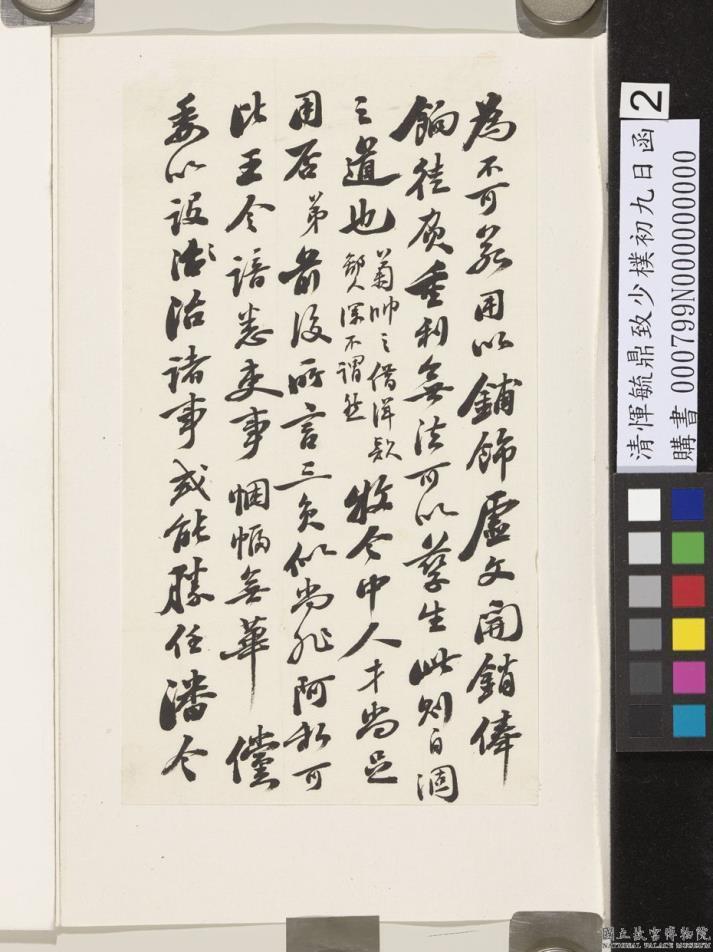 為不可若用以鋪飾虛文開銷俸
餉徒負重利無法可以孳生此則自涸
之道也
菊帥之借洋款
鄙人深不謂然
牧令中人才尚足
用否弟前後所言三負似尚非阿私可
比王令諳悉吏事悃愊無華儻
委以設法法治諸事或能勝任潘令
清惲毓鼎致少樸初九日函
購書 000799N000000000
2
國立故宮博物院
NATIONAL PALACE MUSEUM